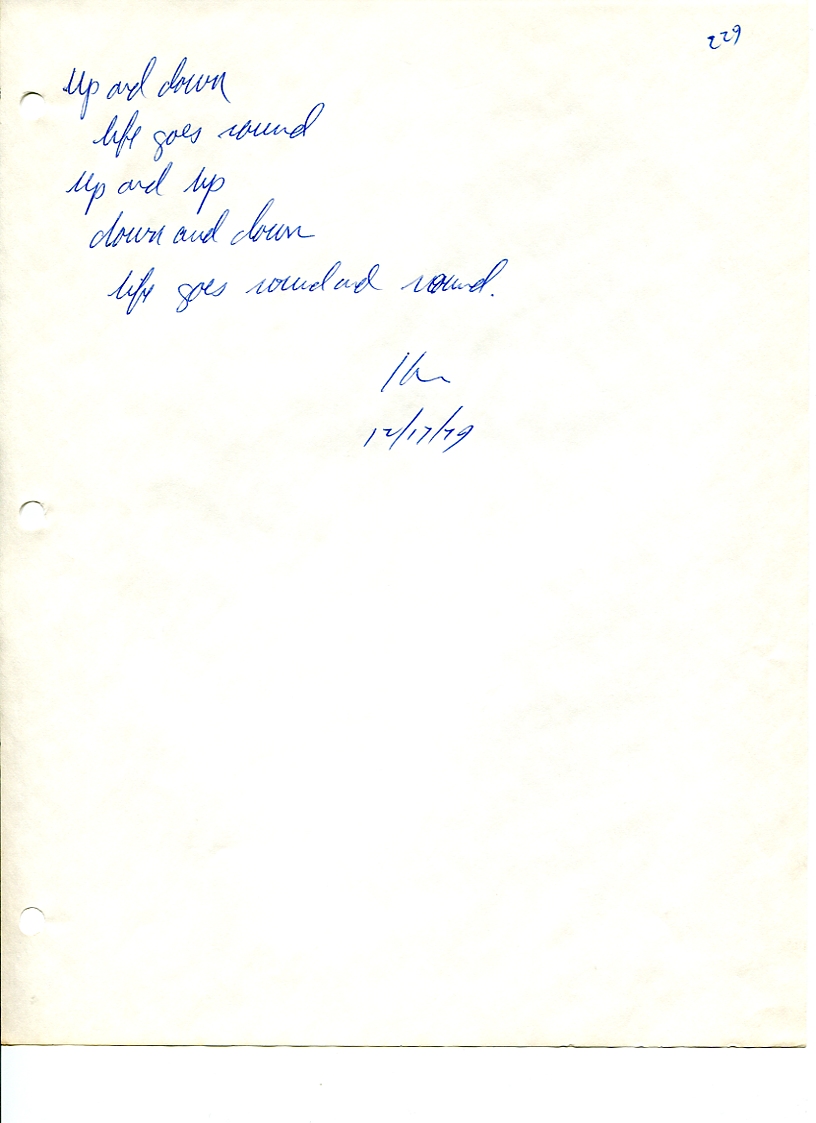 229
Up and down
life goes round
Up and up
down and down
life goes round and round.
12/17/79